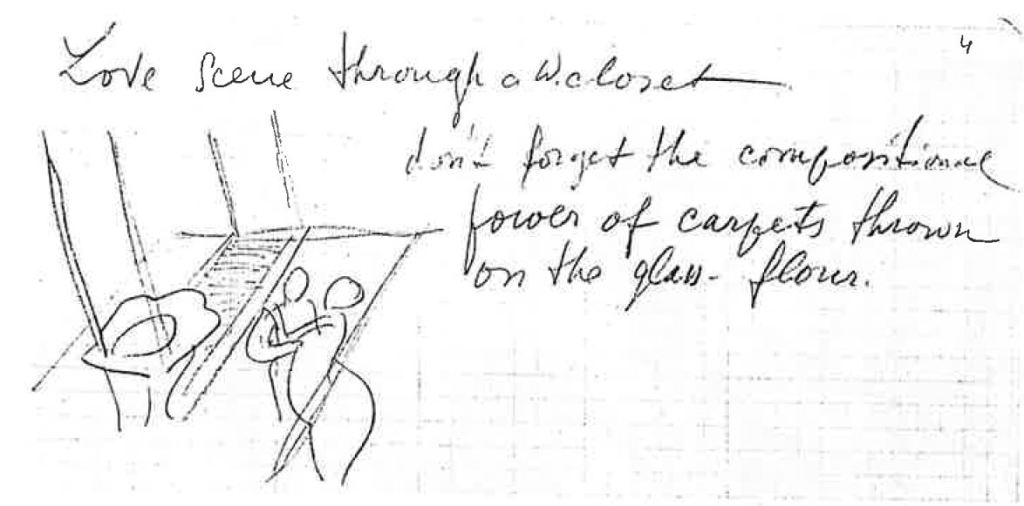 4
Love Scene through a W.closet
don't forget the compositional
power of carpets thrown
on the glass-flour.